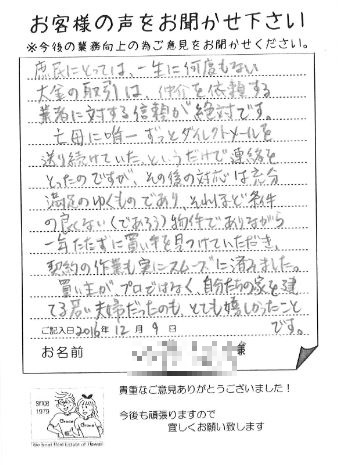 お客様の声をお聞かせ下さい
※今後の業務向上の為ご意見をお聞かせください。
庶民にとっては、一生に何度もない
大金の取引は、仲介を依頼する
業者に対する信頼が絶対です。
亡母に唯一ずっとダイレクトメールを
送り続けていた、というだけで連絡を
とったのですが、その後の対応は充分
満足のゆくものであり、それほど条件
の良くない(であろう)物件でありながら
一年たたずに買い手を見つけていただき、
契約の作業も実にスムーズに済みました。
買い主が、プロではなく、自分たちの家を建
てる若い夫婦だったのも、とても嬉しかったこと
です。
ご記入日 2016年 12月 9日
お名前 様
since
1979
貴重なご意見ありがとうございました!
今後も頑張りますので
宜しくお願い致します